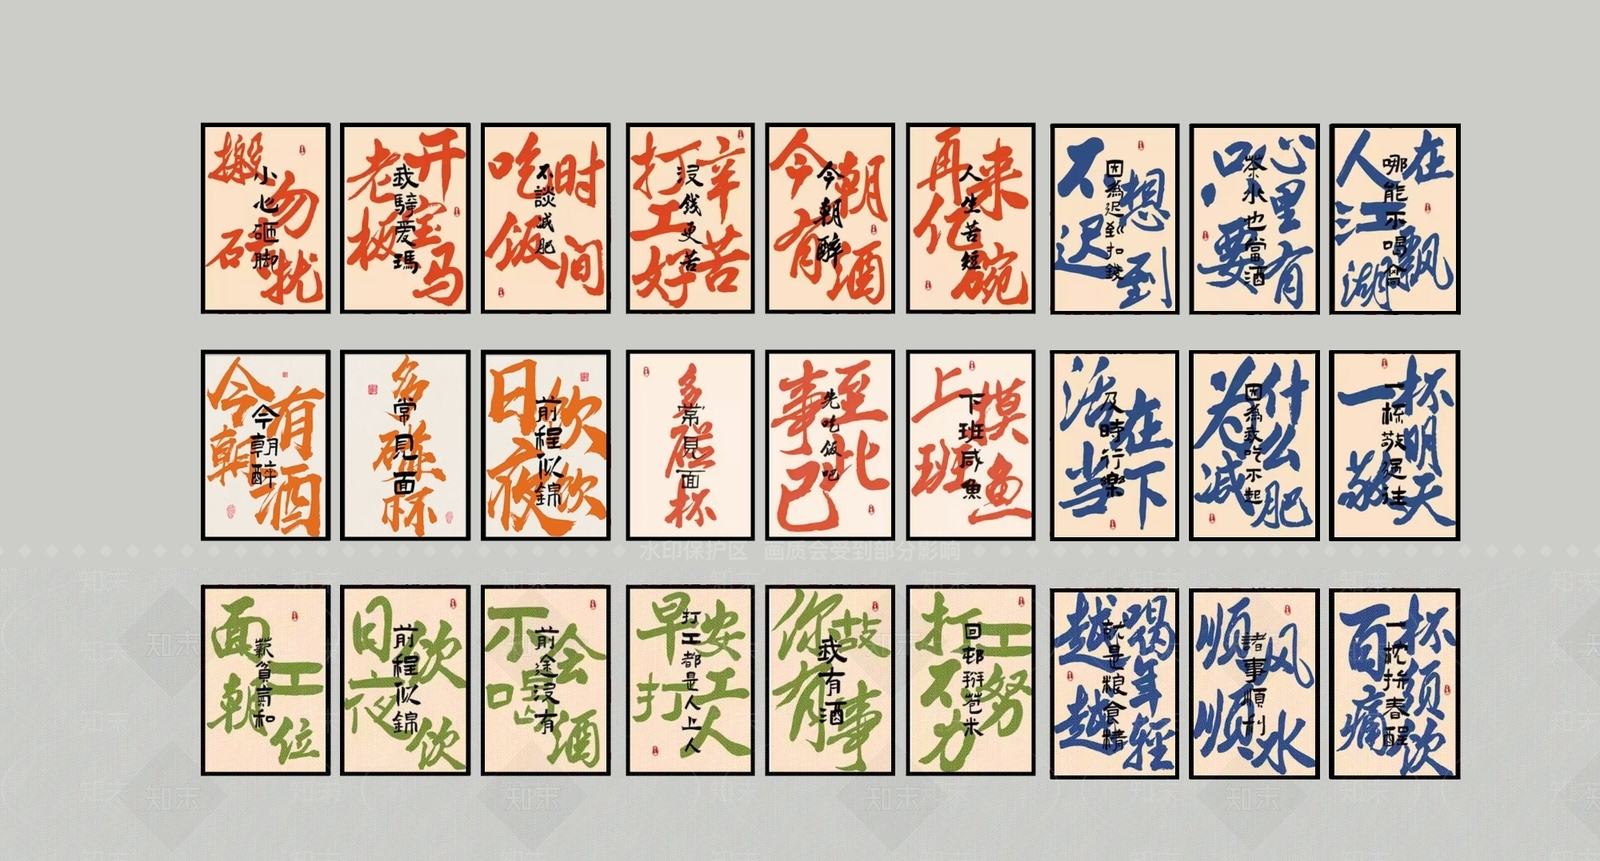 搬石勿扰
小心砸脚
老板开宝马
我騎爱瑪
吃饭时间
不談减肥
打工好辛苦
没錢更苦
今朝有酒
今朝醉
再来亿碗
人生苦短
不想迟到
因為迟到扣錢
只要心里有
茶水也當酒
人在江湖飘
哪能不喝高
今朝有酒
今朝醉
多碰杯
常見面
日夜饮饮
前程似錦
多碰杯
常見面
事已至此
先吃饭吧
上班摸鱼
下班咸魚
活在当下
及時行樂
为什么减肥
因為我吃不起
一杯敬明天
一杯敬過往
面朝工位
薪貧氣和
日夜饮饮
前程似錦
不会喝酒
前途沒有
早安打工人
打工都是人上人
你有故事
我有酒
打工不努力
回邨掰苞米
越喝越年轻
就是粮食精
顺风顺水
諸事順利
百杯须痛饮
一枕拚春酲
水印保护区 画质会受到部分影响
知末